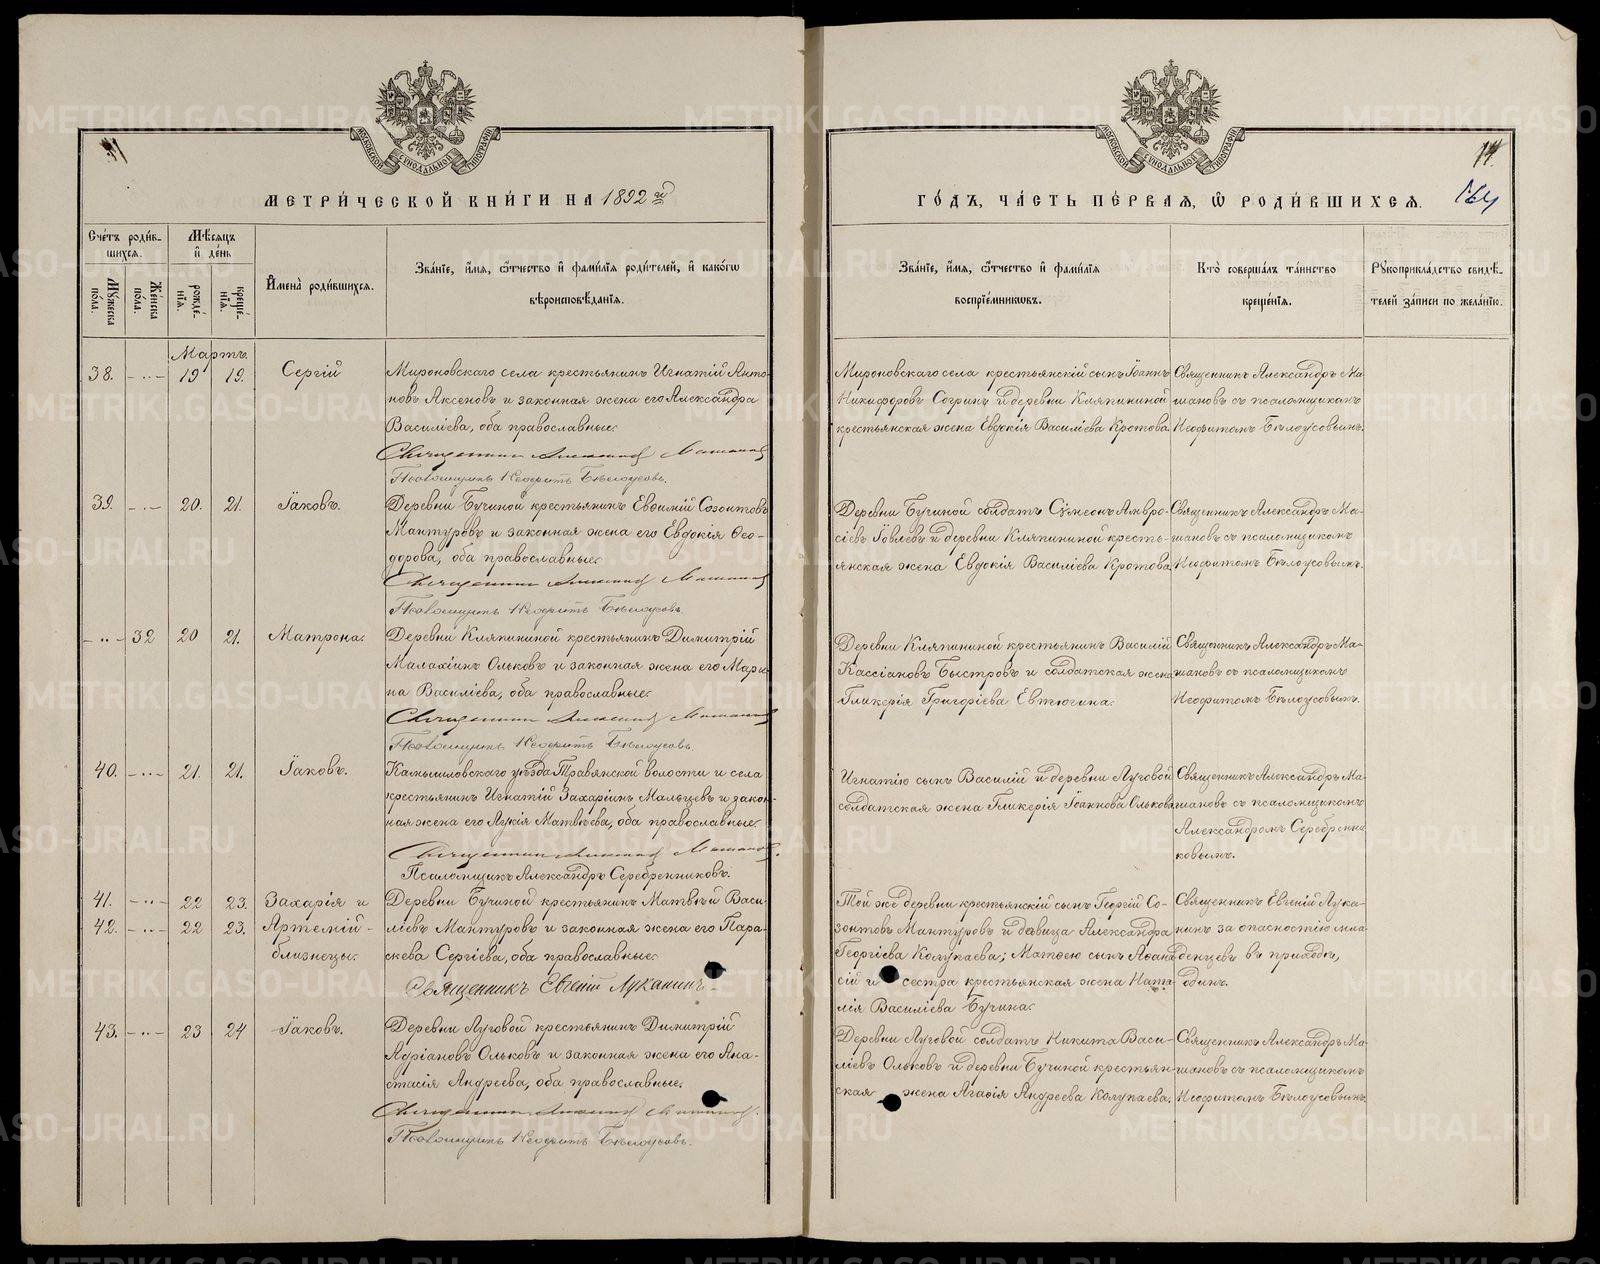 МЕТРИ́ЧЕСКОЙ КНИ́ГИ НА 1892й
Сче́тъ роди́в-
шихся.
Мѣ́сяцъ
и҆ де́нь
И҆мена̀ роди́вшихся.
Зва́нїе, и҆́мя, ѻ҆́тчество и҆ фами́лїя роди́телей, и҆ како́гѡ
вѣроисповѣ́данїя.
Мꙋ́жеска
по́ла.
Же́нска
по́ла.
рожде́-
нїя.
креще́-
нїя.
Мартъ
38. -..- 19 19. Сергій
Мироновскаго села крестьянинъ Игнатій Анто-
новъ Аксеновъ и законная жена его Александра
Василіева, оба православные.
Священникъ Александръ Машановъ
Псаломщикъ Неофитъ Бѣлоусовъ.
39. -..- 20. 21. Іаковъ.
Деревни Бучиной крестьянинъ Евѳимій Созонтовъ
Мантуровъ и законная жена его Евдокія Ѳео-
дорова, оба православные.
Священникъ Александръ Машановъ
Псаломщикъ Неофитъ Бѣлоусовъ.
-..- 32 20 21. Матрона.
Деревни Кляпининой крестьянинъ Димитрій
Малахіинъ Ольковъ и законная жена его Мари-
на Василіева, оба православные.
Священникъ Александръ Машановъ
Псаломщикъ Неофитъ Бѣлоусовъ.
40. -..- 21. 21. Іаковъ.
Камышловскаго уѣзда Травянской волости и села
крестьянинъ Игнатій Захаріинъ Мальцевъ и закон-
ная жена его Лукія Матвѣева, оба православные.
Священникъ Александръ Машановъ.
Псаломщикъ Александръ Серебренниковъ.
41. -..- 22 23. Захарія и
42. -..- 22 23. Артемій -
близнецы.
Деревни Бучиной крестьянинъ Матвѣй Васи-
ліевъ Мантуровъ и законная жена его Пара-
скева Сергіева, оба православные.
Священникъ Евгеній Луканинъ.
43. -..- 23 24 Іаковъ.
Деревни Луговой крестьянинъ Димитрій
Адріановъ Ольковъ и законная жена его Ана-
стасія Андреева, оба православные.
Священникъ Александръ Машановъ.
Псаломщикъ Неофитъ Бѣлоусовъ.
ГО́ДЪ, ЧА́СТЬ ПЕ́РВАЯ, Ѽ РОДИ́ВШИХСЯ.
Зва́нїе, и҆́мя, ѻ҆́тчество и҆ фами́лїя
воспрїе́мниковъ.
Кто̀ соверша́лъ та́инство
креще́нїя.
Рꙋкоприкла́дство свидѣ́-
телей за́писи по жела́нїю.
Мироновскаго села крестьянскій сынъ Іоаннъ
Никифоровъ Согринъ и деревни Кляпининой
крестьянская жена Евдокія Василіева Кротова.
Священникъ Александръ Ма-
шановъ съ псаломщикомъ
Неофитомъ Бѣлоусовымъ.
Деревни Бучиной солдатъ Сѵмеонъ Амвро-
сіевъ Іовлевъ и деревни Кляпининой кресть-
янская жена Евдокія Василіева Кротова
Священникъ Александръ Ма-
шановъ съ псаломщикомъ
Неофитомъ Бѣлоусовымъ.
Деревни Кляпининой крестьянинъ Василій
Кассіановъ Быстровъ и солдатская жена
Гликерія Григоріева Евтюгина.
Священникъ Александръ Ма-
шановъ съ псаломщикомъ
Неофитомъ Бѣлоусовымъ.
Игнатію сынъ Василій и деревни Луговой
солдатская жена Гликерія Іоаннова Олькова
Священникъ Александръ Ма-
шановъ съ псаломщикомъ
Александромъ Серебренни-
ковымъ.
Той же деревни крестьянскій сынъ Георгій Со-
зонтовъ Мантуровъ и дѣвица Александра
Георгіева Колупаева; Матѳею сынъ Аѳана-
сій и сестра крестьянская жена Ната-
лія Василіева Бучина.
Священникъ Евгеній Лука-
нинъ за опасностію мла-
денцевъ въ приходѣ,
одинъ.
Деревни Луговой солдатъ Никита Васи-
ліевъ Ольковъ и деревни Бучиной крестьян-
ская жена Агаѳія Андреева Колупаева.
Священникъ Александръ Ма-
шановъ съ псаломщикомъ
Неофитомъ Бѣлоусовымъ.
МОСКОВСКОЙ СѴНОДАЛЬНОЙ ТИПОГРАФІИ
МОСКОВСКОЙ СѴНОДАЛЬНОЙ ТИПОГРАФІИ
METRIKI.GASO-URAL.RU